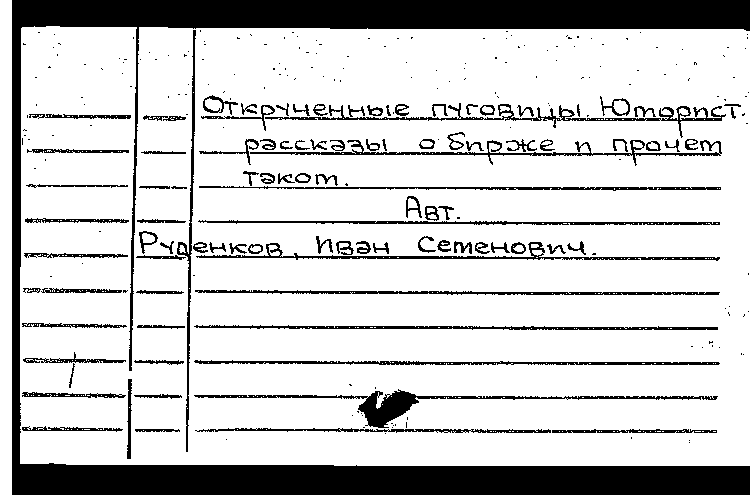 Открученные пуговицы. Юморист.
рассказы о бирже и прочем
таком.
Авт.
Руденков, Иван Семенович.